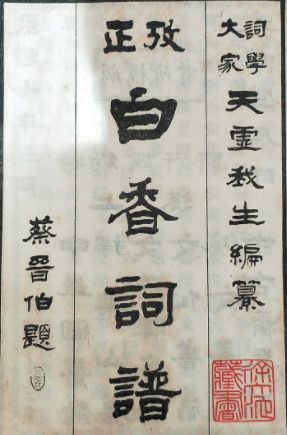 詞學大家天虛我生編纂
攷正
白香詞譜
蔡晉伯題
藏書